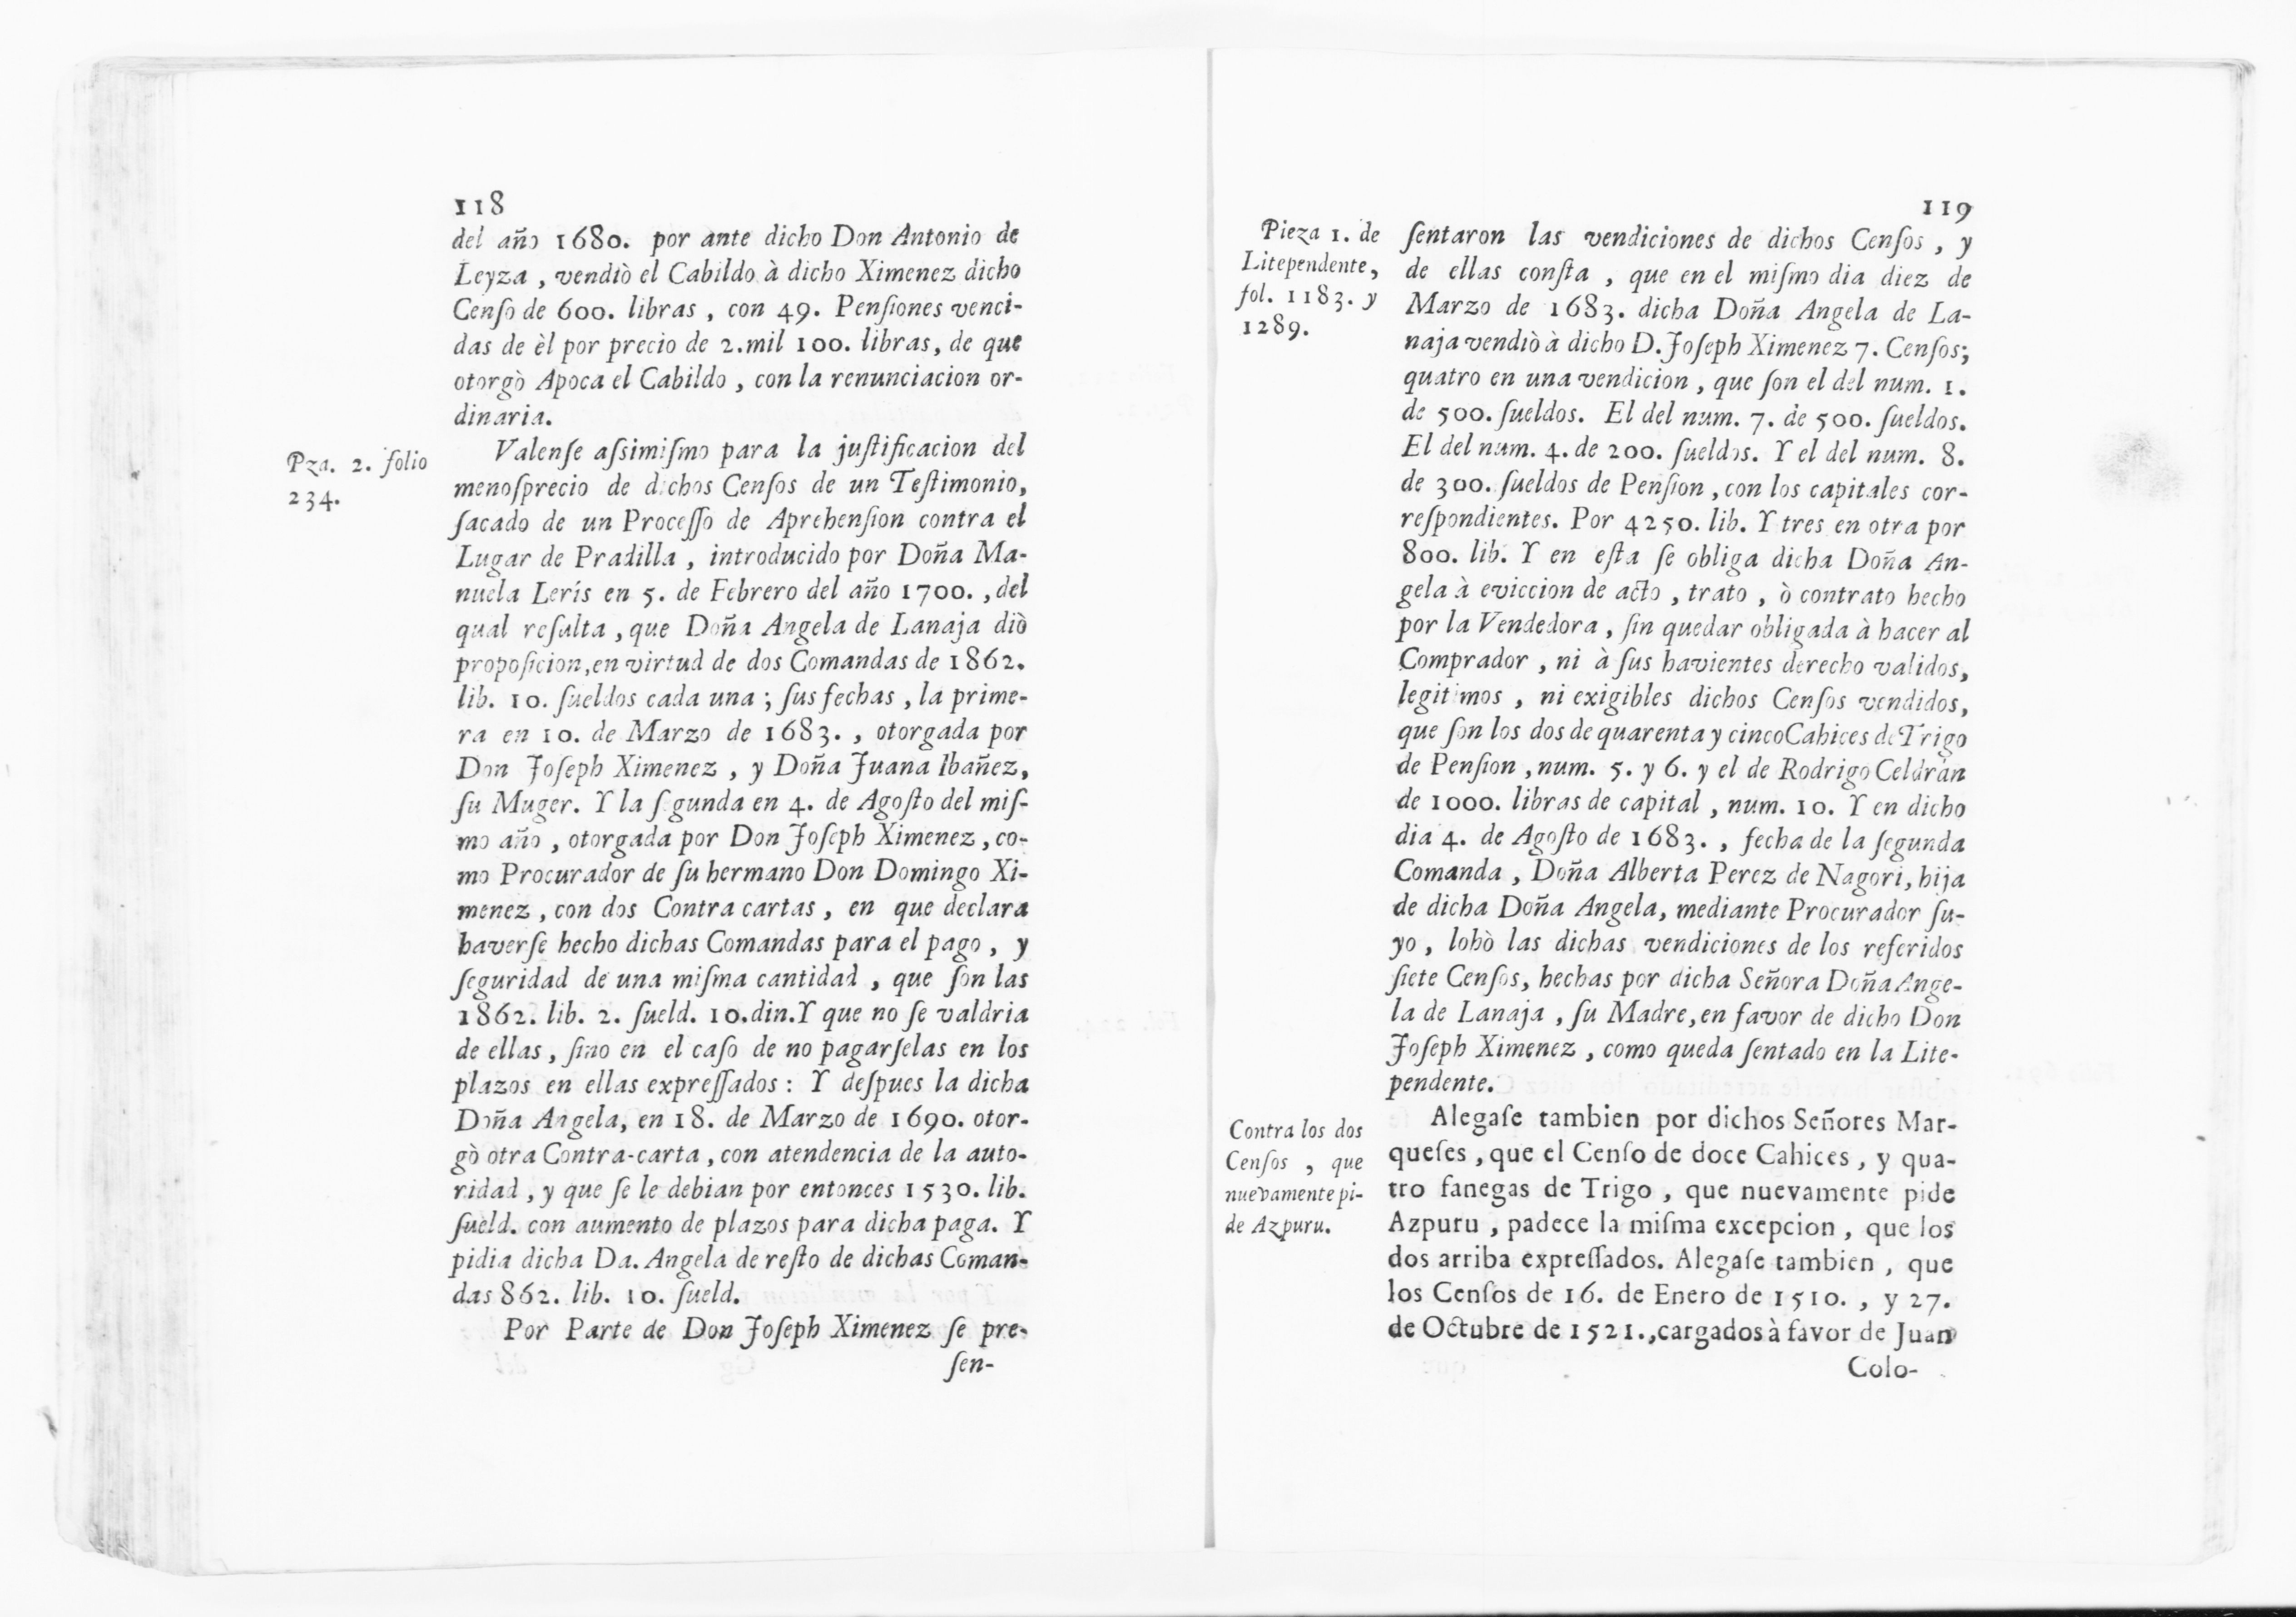 118
del año 1680. por ante dicho Don Antonio de
Leyza , vendiò el Cabildo à dicho Ximenez dicho
Cenſo de 600. libras , con 49. Penſiones venci-
das de èl por precio de 2.mil 100. libras, de que
otorgò Apoca el Cabildo , con la renunciacion or-
dinaria.
Pza. 2. folio
234.
Valenſe aſsimiſmo para la juſtificacion del
menoſprecio de dichos Cenſos de un Teſtimonio,
ſacado de un Proceſſo de Aprehenſion contra el
Lugar de Pradilla , introducido por Doña Ma-
nuela Lerís en 5. de Febrero del año 1700. , del
qual reſulta , que Doña Angela de Lanaja diò
propoſicion,en virtud de dos Comandas de 1862.
lib. 10. ſueldos cada una ; ſus fechas , la prime-
ra en 10. de Marzo de 1683. , otorgada por
Don Joſeph Ximenez , y Doña Juana Ibañez,
ſu Muger. Y la ſegunda en 4. de Agoſto del miſ-
mo año , otorgada por Don Joſeph Ximenez , co-
mo Procurador de ſu hermano Don Domingo Xi-
menez , con dos Contra cartas , en que declara
haverſe hecho dichas Comandas para el pago , y
ſeguridad de una miſma cantidad , que ſon las
1862. lib. 2. ſueld. 10.din.Y que no ſe valdria
de ellas , ſino en el caſo de no pagarſelas en los
plazos en ellas expreſſados : Y deſpues la dicha
Doña Angela, en 18. de Marzo de 1690. otor-
gò otra Contra-carta , con atendencia de la auto-
ridad , y que ſe le debian por entonces 1530. lib.
ſueld. con aumento de plazos para dicha paga. Y
pidia dicha Da. Angela de reſto de dichas Coman-
das 862. lib. 10. ſueld.
Por Parte de Don Joſeph Ximenez ſe pre-
ſen-
119
Pieza 1. de
Litependente,
fol. 1183. y
1289.
ſentaron las vendiciones de dichos Cenſos , y
de ellas conſta , que en el miſmo dia diez de
Marzo de 1683. dicha Doña Angela de La-
naja vendiò à dicho D. Joſeph Ximenez 7. Cenſos;
quatro en una vendicion , que ſon el del num. 1.
de 500. ſueldos. El del num. 7. de 500. ſueldos.
El del num. 4. de 200. ſueldos. Y el del num. 8.
de 300. ſueldos de Penſion , con los capitales cor-
reſpondientes. Por 4250. lib. Y tres en otra por
800. lib. Y en eſta ſe obliga dicha Doña An-
gela à eviccion de acto , trato , ò contrato hecho
por la Vendedora , ſin quedar obligada à hacer al
Comprador , ni à ſus havientes derecho validos,
legitimos , ni exigibles dichos Cenſos vendidos,
que ſon los dos de quarenta y cinco Cahices de Trigo
de Penſion , num. 5. y 6. y el de Rodrigo Celdràn
de 1000. libras de capital , num. 10. Y en dicho
dia 4. de Agoſto de 1683. , fecha de la ſegunda
Comanda , Doña Alberta Perez de Nagori, hija
de dicha Doña Angela, mediante Procurador ſu-
yo , lohò las dichas vendiciones de los referidos
ſiete Cenſos, hechas por dicha Señora Doña Ange-
la de Lanaja , ſu Madre, en favor de dicho Don
Joſeph Ximenez , como queda ſentado en la Lite-
pendente.
Contra los dos
Cenſos , que
nuevamente pi-
de Azpuru.
Alegaſe tambien por dichos Señores Mar-
queſes , que el Cenſo de doce Cahices , y qua-
tro fanegas de Trigo , que nuevamente pide
Azpuru , padece la miſma excepcion , que los
dos arriba expreſſados. Alegaſe tambien , que
los Cenſos de 16. de Enero de 1510. , y 27.
de Octubre de 1521., cargados à favor de Juan
Colo-